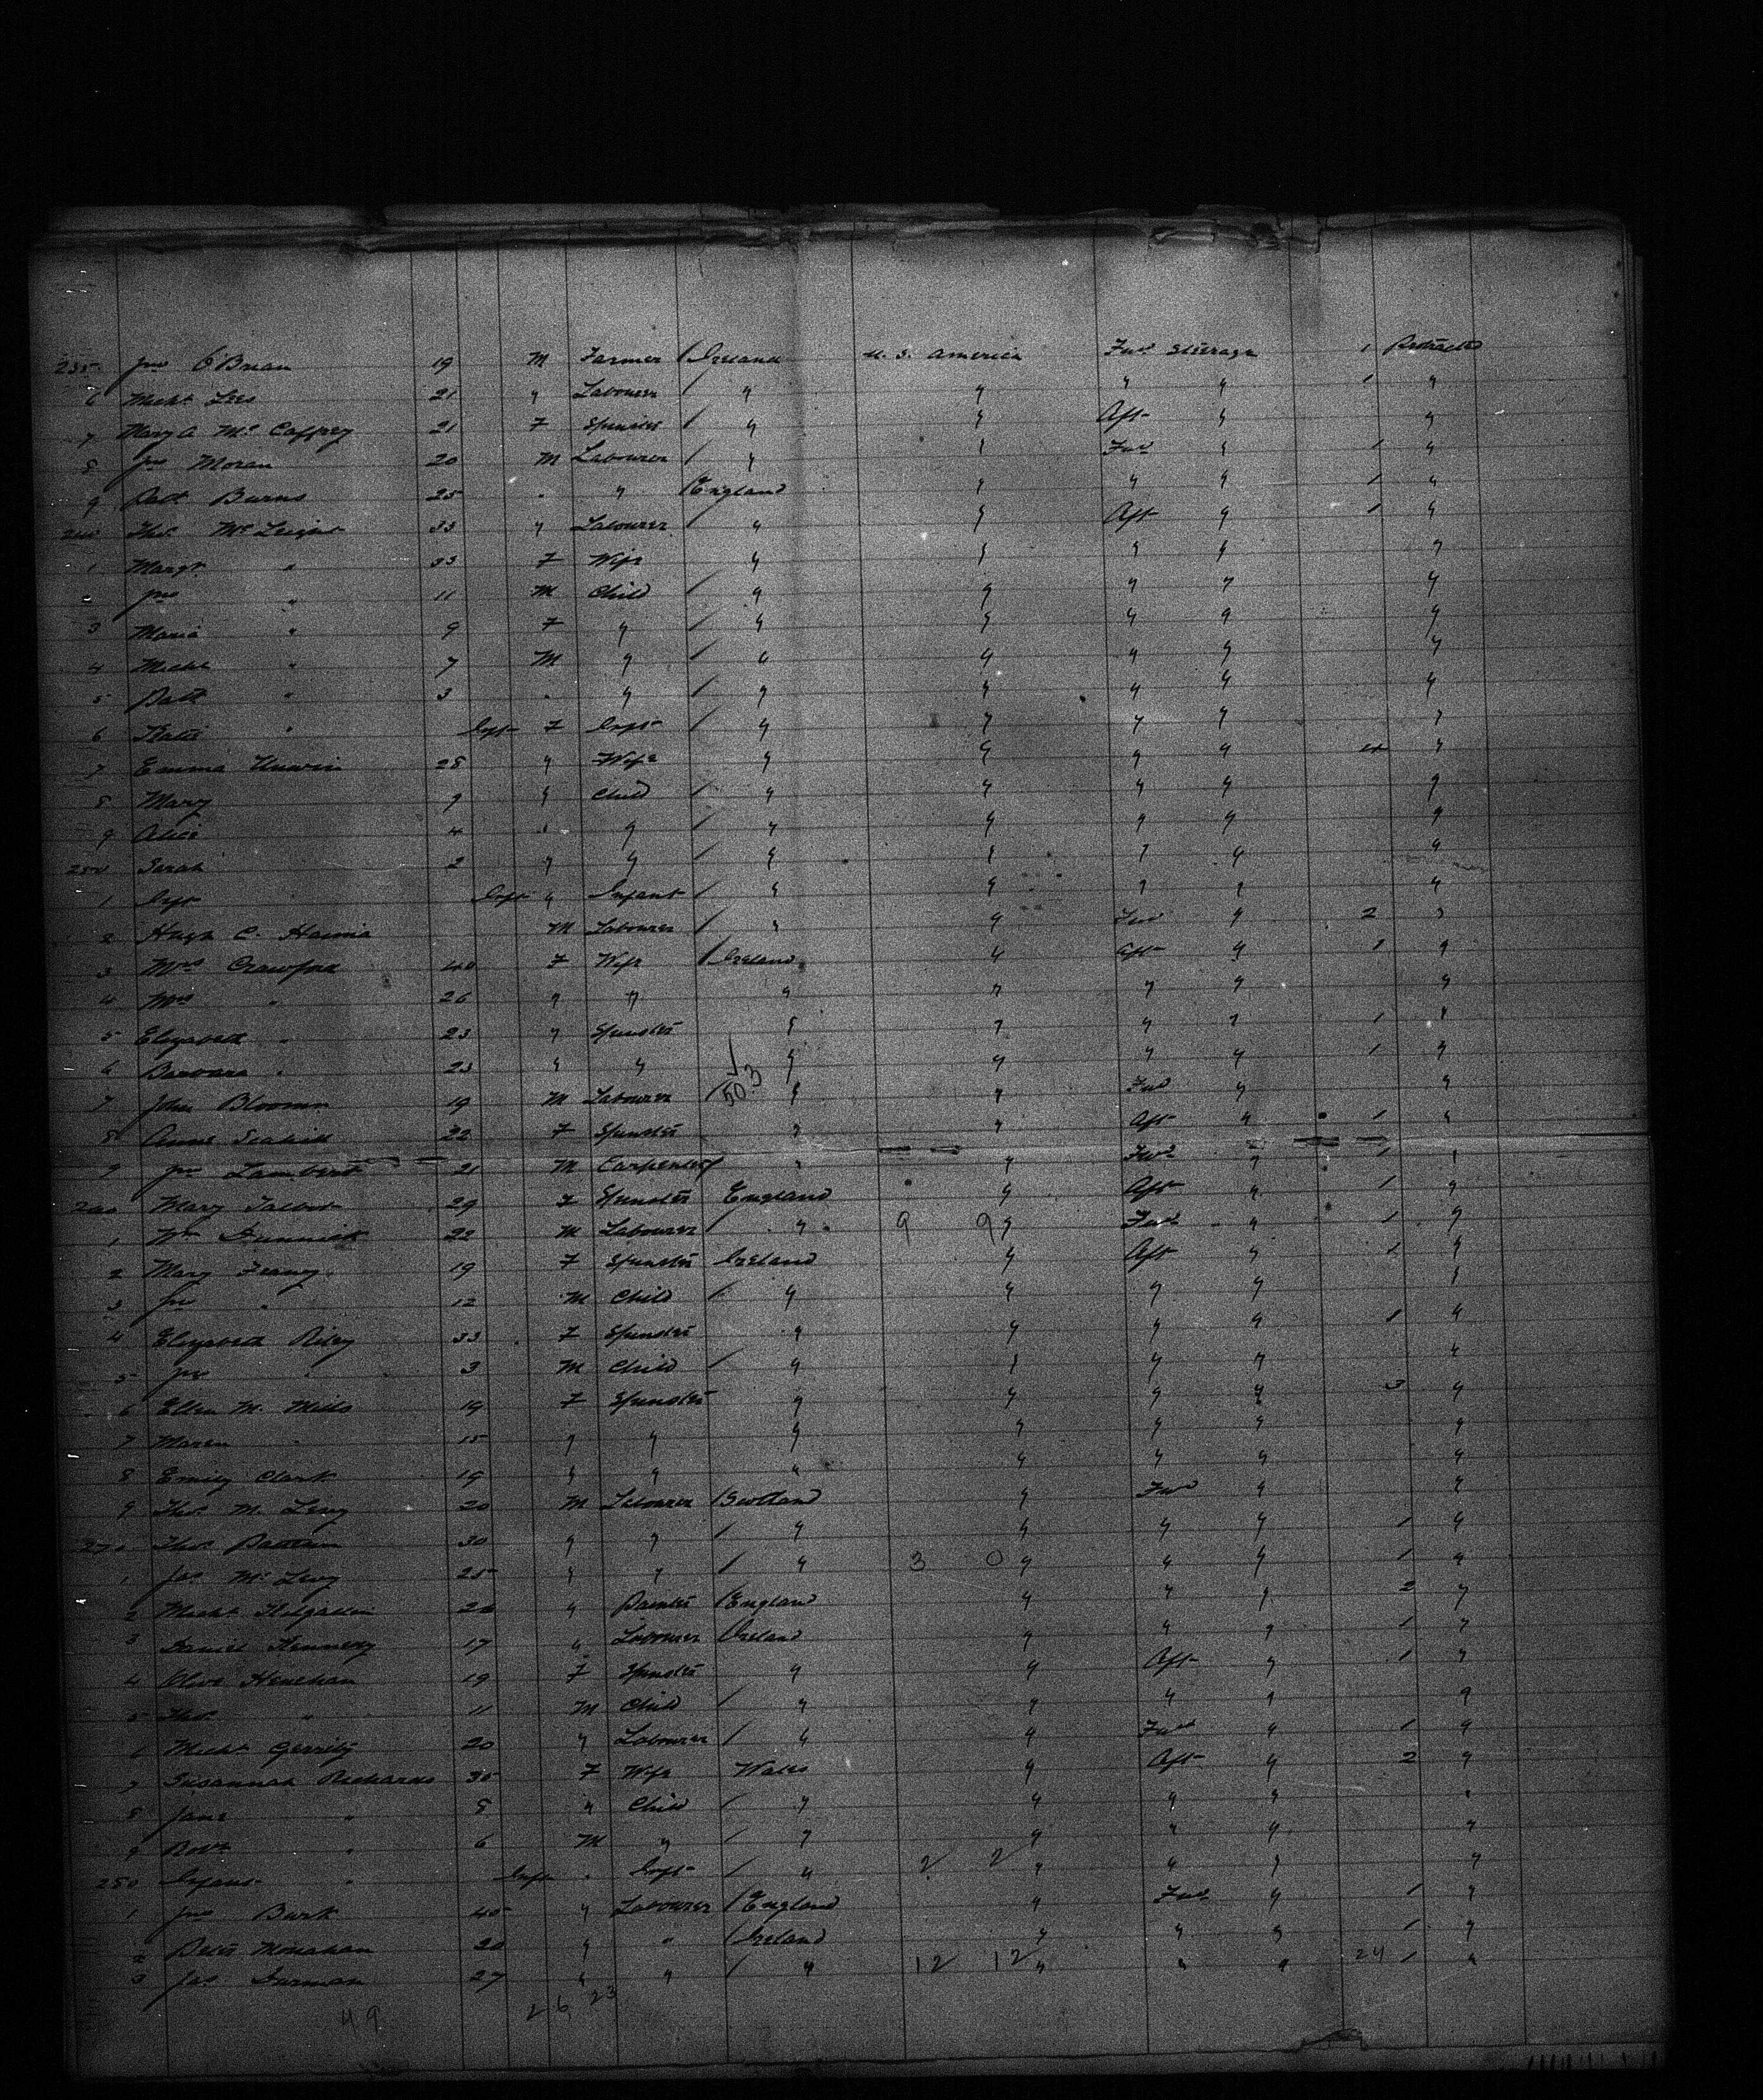 235 Jno O'Brian 19 M Farmer / Ireland U. S. America Fwd Steerage 1 Protracted
6 Michl Lees 21 " Labourer / " " " " 1 "
7 Mary A McCaffrey 21 F Spinster / " " Aft " "
8 Jno Moran 20 M Labourer / " " Fwd " 1 "
9 Patt Burns 25 " " / England " " " 1 "
240 Thos 33 " Labourer / " " Aft " 1 "
1 Margt " 33 F Wife " " " " "
2 Jno " 11 M Child / " " " " "
3 Maria " 9 F " / " " " " "
4 Michl " 7 M " / " " " " "
5 Patt " 3 " " / " " " " "
6 Katie " Inft F Inft / " " " " "
7 Emma Unwin 28 " Wife " " " " 4 "
8 Mary 9 " Child / " " " " "
9 Alice 4 " " / " " " " "
250 Sarah 2 " " / " " " " "
1 Inft Inft " Infant / " " " " "
2 Hugh C. M Labourer / " " Fwd " 2 "
3 Mrs Crawford 40 F Wife / Ireland " Aft " 1 "
4 Mrs " 26 " " " " " " "
5 Elizabeth " 23 " Spinster " " " " 1 "
6 Barbara " 23 " " " " " " 1 "
7 John 19 M Labourer / 503 " " Fwd " "
8 Anne 22 F Spinster " " Aft " 1 "
9 Jno Lambert 21 M Carpenter / " " Fwd " 1 "
260 Mary Talbot 29 F Spinster England " Aft " 1 "
1 Wm 22 M Labourer / " 9 9 " Fwd " 1 "
2 Mary Feany 19 F Spinster Ireland " Aft " 1 "
3 Jno " 12 M Child / " " " " "
4 Elizabeth Riley 33 F Spinster " " " " 1 "
5 Jno " 3 M Child / " " " " "
6 Ellen M. Mills 19 F Spinster " " " " 3 "
7 " 15 " " " " " " "
8 Emily Clark 19 " " " " " " "
9 Thos M. Levy 20 M Labourer / Scotland " Fwd " "
270 Thos 30 " " / " " " " 1 "
1 Jas McLevy 25 " " / " 3 0 " " " 1 "
2 Michl 26 " Painter / England " " " 2 "
3 Daniel Kennedy 17 " Labourer Ireland " " " 1 "
4 Olive Henehan 19 F Spinster " " Aft " 1 "
5 Thos " 11 M Child / " " " " "
6 Michl Gerrity 20 " Labourer / " " Fwd " 1 "
7 Susannah Richards 35 F Wife Wales " Aft " 2 "
8 Jane " 8 " Child / " " " " "
9 Robt " 6 M " / " " " " "
280 Infant " Inft " Inft / " 2 2 " " " "
1 Jno Burk 45 " Labourer / England " Fwd " 1 "
2 Peter Monahan 20 " " / Ireland " " " 1 "
3 Jas 27 " " / " 12 12 " " " 24 1 "
49 26 23